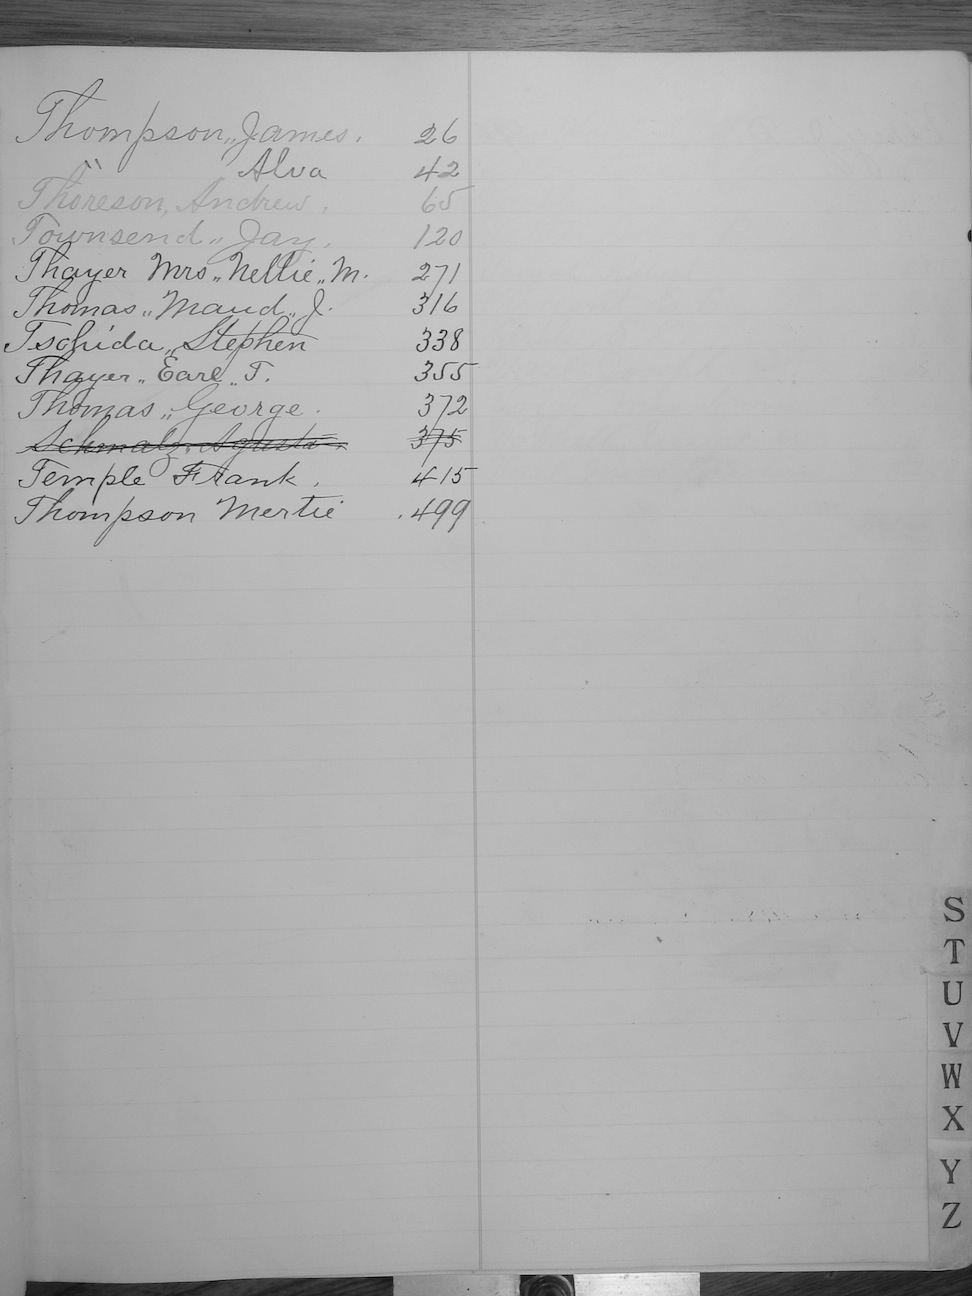 Thompson,, James. 26
" Alva 42
Thoreson, Andrew. 65
Townsend,, Jay. 120
Thayer Mrs,, Nellie,, M. 271
Thomas,, Maud,, J. 316
Tschida,, Stephen 338
Thayer,, Earl,, T. 355
Thomas,, George. 372
Schmalz,, Agusta. 375
Temple Frank. 415
Thompson Mertie .499
S
T
U
V
W
X
Y
Z